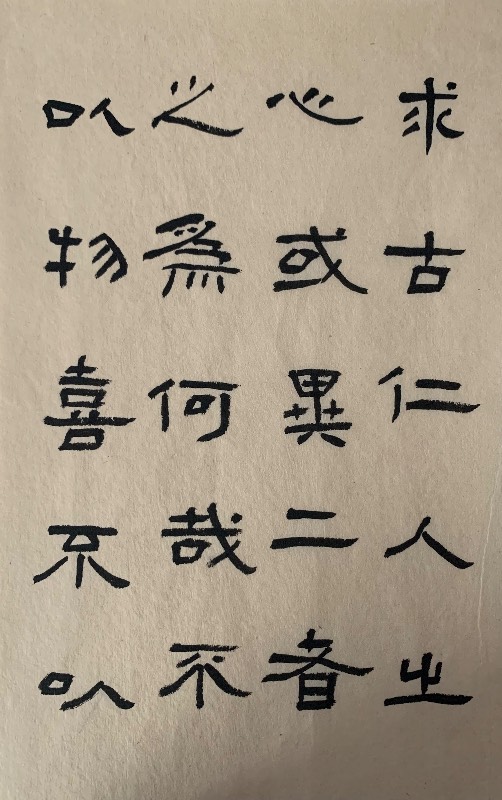 求古仁人之
心或異二者
之爲何哉不
以物喜不以